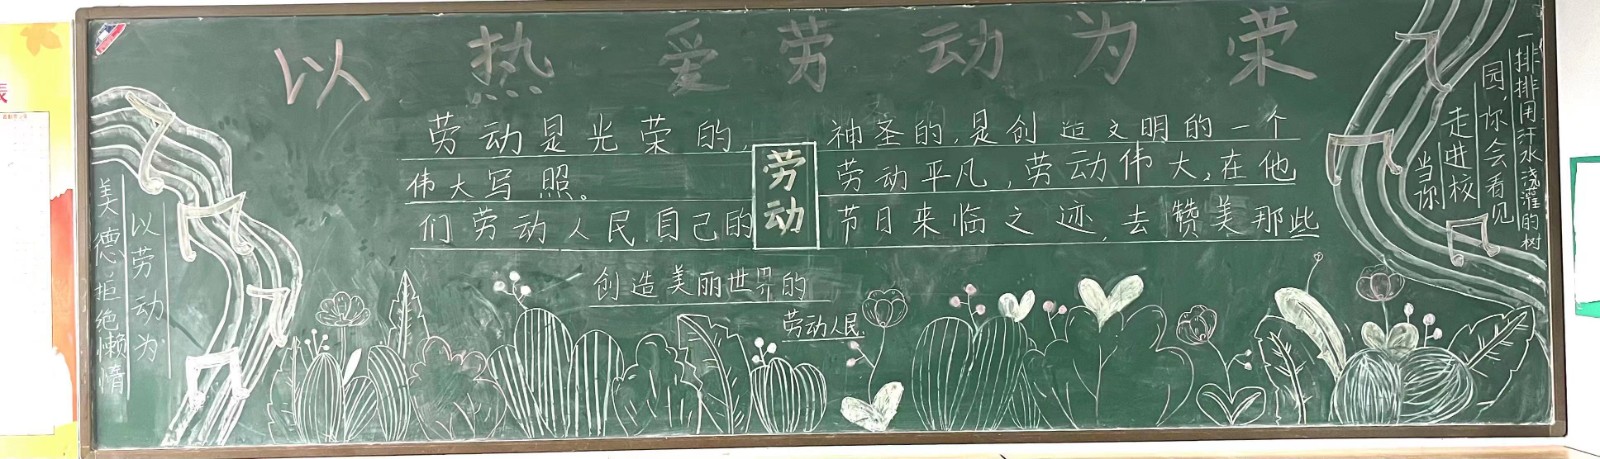 以热爱劳动为荣
劳动是光荣的,神圣的,是创造文明的一个
伟大写照。劳动平凡,劳动伟大,在他
们劳动人民自己的节日来临之迹,去赞美那些
创造美丽世界的
劳动人民
劳动
以劳动为
美德拒绝懒惰
当你
走进校
园,你会看见
一排排用汗水浇灌的树